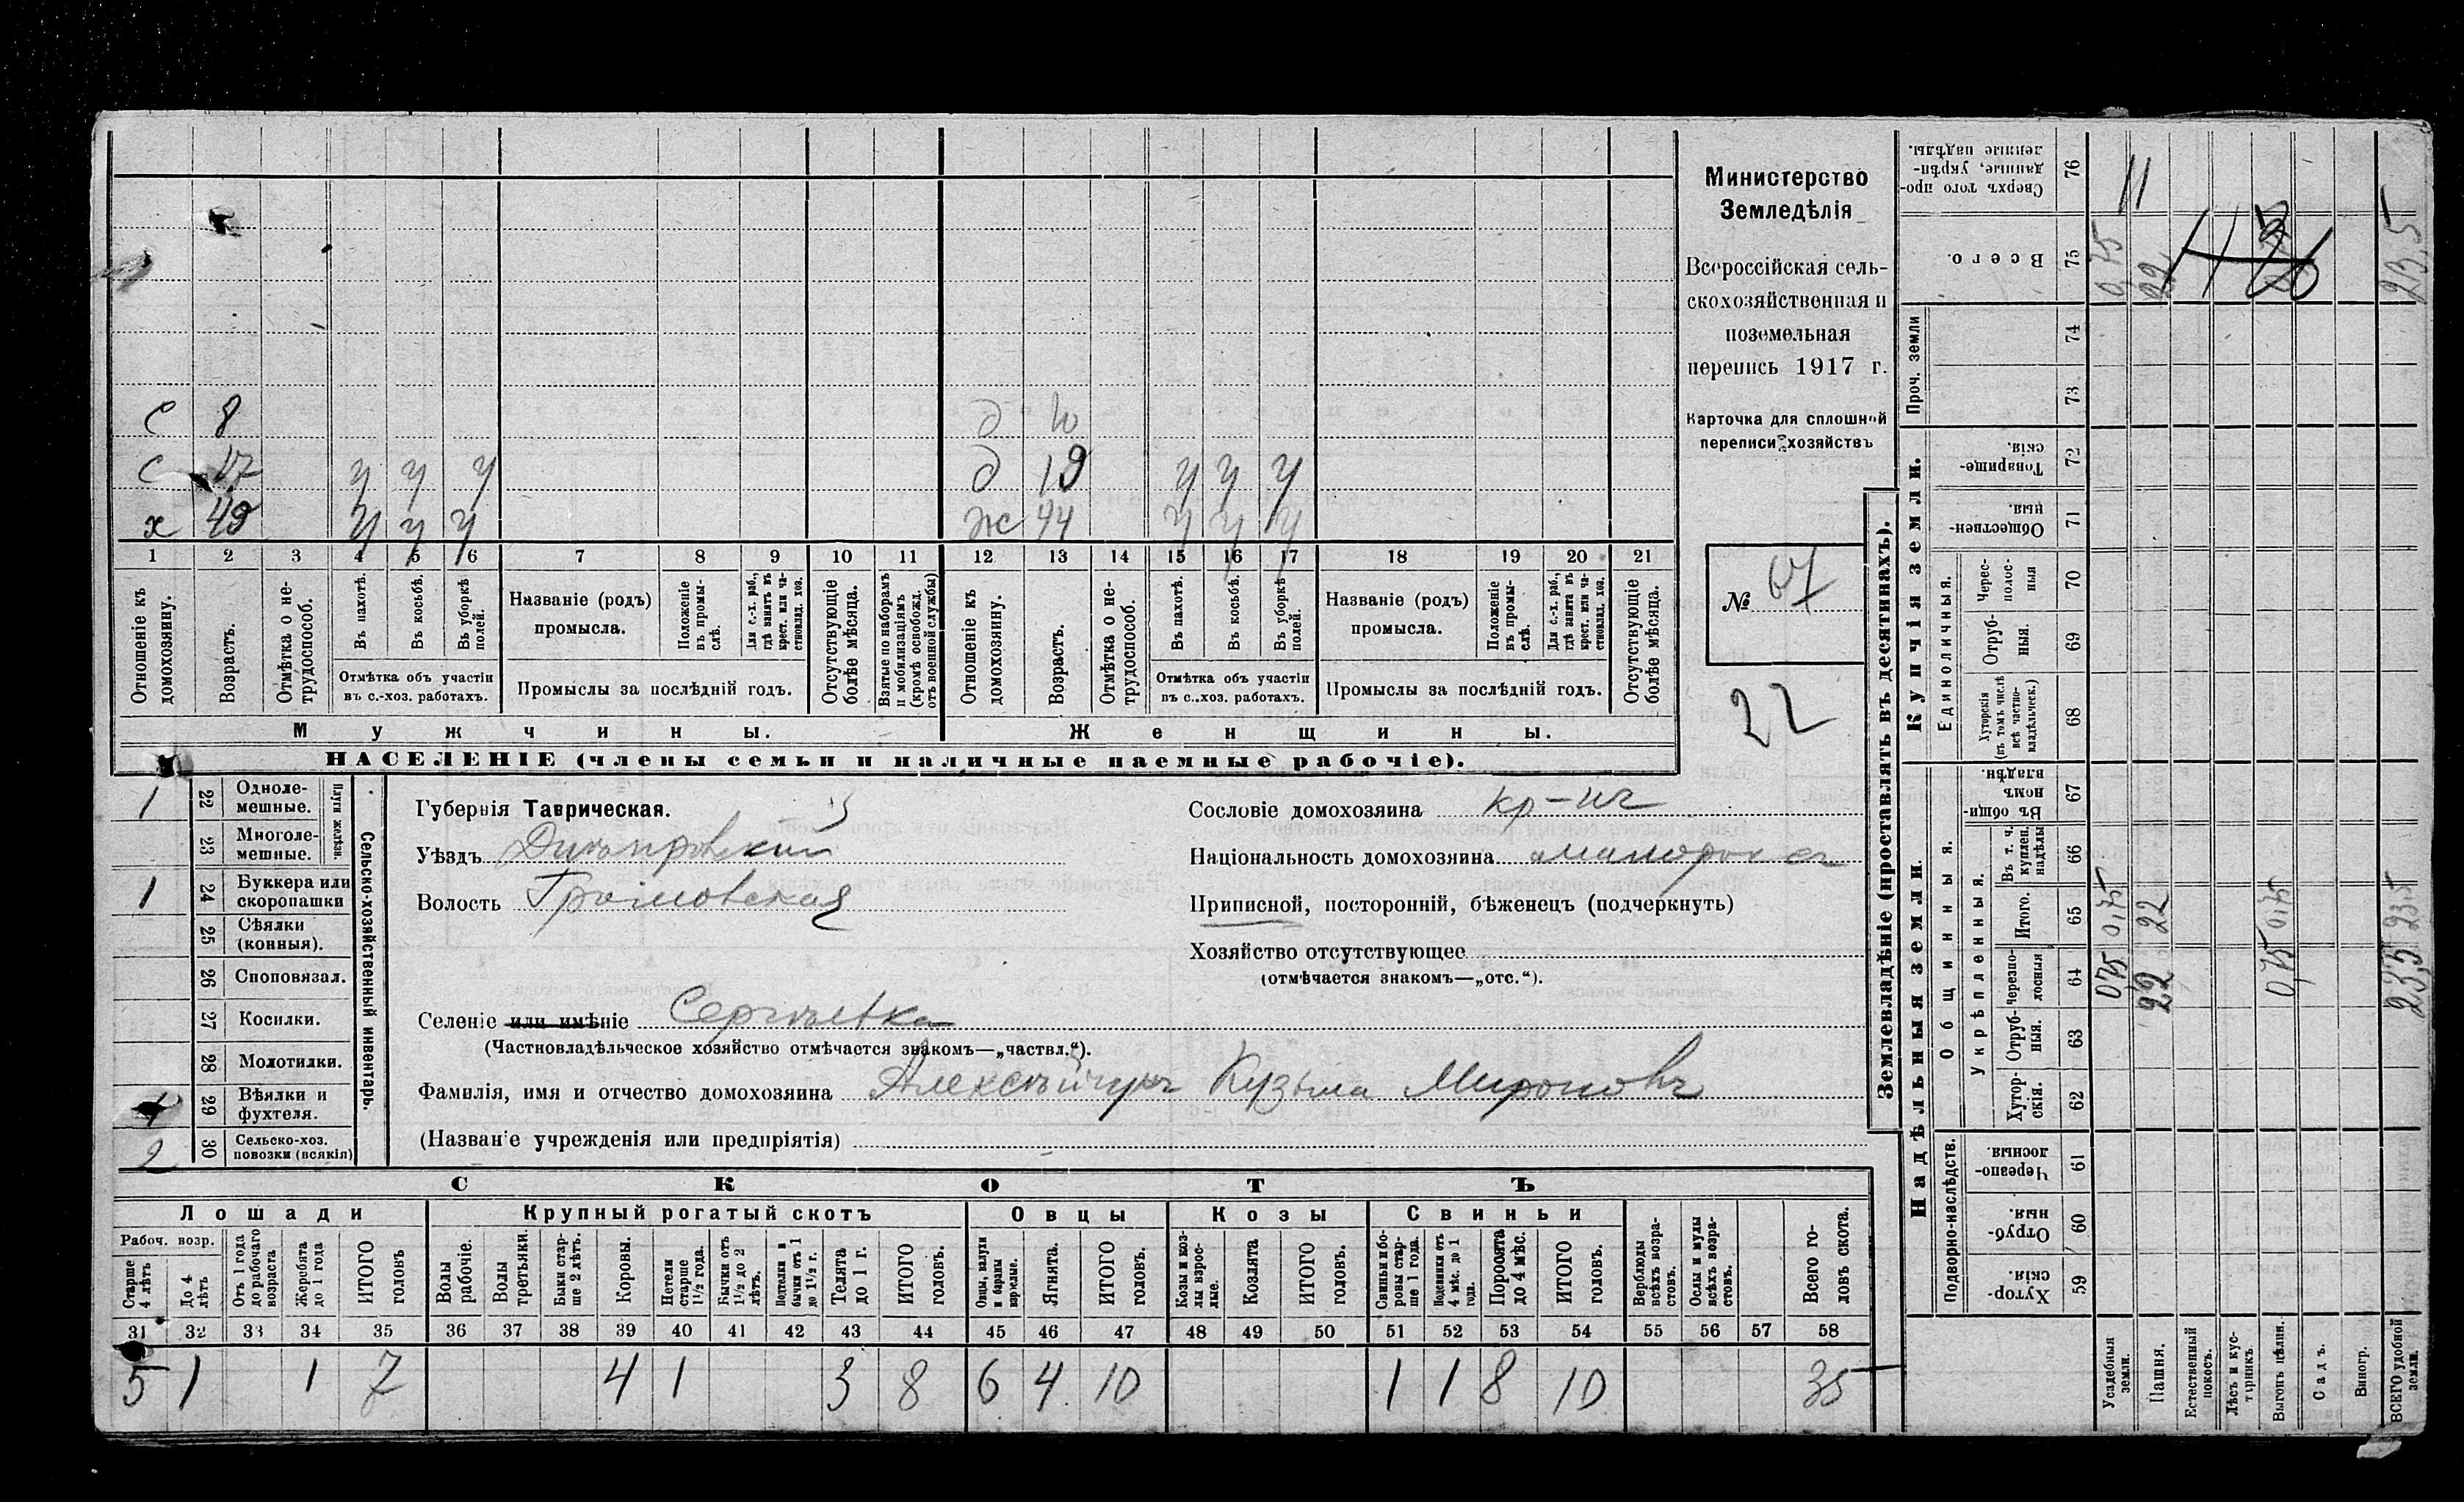 Министерство
Земледѣлія
Всероссійская сель-
скохозяйственная и
поземельная
перепись 1917 г.
Карточка для сплошной
переписи хозяйствъ
№ 67
22
с 8 д 10
с 17 у у у д 19 у у у
х 49 у у у ж 44 у у у
1 2 3 4 5 6 7 8 9 10 11 12 13 14 15 16 17 18 19 20 21
Отношеніе къ домохозяину.
Возрастъ.
Отмѣтка о не-трудоспособ.
Въ пахотѣ.
Въ косьбѣ.
Въ уборкѣ полей.
Отмѣтка объ участіи
въ с.-хоз. работахъ.
Названіе (родъ)
промысла.
Положеніе въ промы-слѣ.
Для с.-х. раб., гдѣ занятъ въ крест. или ча-стновлад. хоз.
Промыслы за послѣдній годъ.
Отсутствующіе болѣе мѣсяца.
Взятые по наборамъ и мобилизаціямъ (кромѣ освобожд. отъ военной службы)
Отношеніе къ домохозяину.
Возрастъ.
Отмѣтка о не-трудоспособ.
Въ пахотѣ.
Въ косьбѣ.
Въ уборкѣ полей.
Отмѣтка объ участіи
въ с..хоз. работахъ.
Названіе (родъ)
промысла.
Положеніе въ промы-слѣ.
Для с.-х. раб., гдѣ занята въ крест. или ча-стновлад. хоз.
Промыслы за послѣдній годъ.
Отсутствующіе болѣе мѣсяца.
Мужчины. Женщины.
НАСЕЛЕНІЕ (члены семьи и наличные наемные рабочіе).
Сельско-хозяйственный инвентарь.
Плуги желѣзн.
1 22 Одноле-мешные.
23 Многоле-мешные.
1 24 Буккера или скоропашки
25 Сѣялки (конныя).
26 Споповязал.
27 Косилки.
28 Молотилки.
1 29 Вѣялки и фухтеля.
2 30 Сельско-хоз. повозки (всякія)
Губернія Таврическая.
Уѣздъ Днѣпровскій
Волость Громовская
Сословіе домохозяина кр-нъ
Національность домохозяина малороссъ
Приписной, посторонній, бѣженецъ (подчеркнуть)
Хозяйство отсутствующее
(отмѣчается знакомъ—„отс.“).
Селеніе или имѣніе Сергѣевка
(Частновладѣльческое хозяйство отмѣчается знакомъ—„частвл.“).
Фамилія, имя и отчество домохозяина Алексѣйчукъ Кузьма Мироновъ
(Названіе учрежденія или предпріятія)
СКОТЪ
Лошади Крупный рогатый скотъ Овцы Козы Свиньи
Рабоч. возр.
Старше 4 лѣтъ
До 4 лѣтъ
Отъ 1 года до рабочаго возраста
Жеребята до 1 года
ИТОГО головъ
Волы рабочіе.
Волы третьяки.
Быки стар-ше 2 лѣтъ.
Коровы.
Нетели старше 1½ года.
Бычки отъ 1½ до 2 лѣтъ.
Подтелки и бычки отъ 1 до 1½ г.
Телята до 1 г.
ИТОГО головъ.
Овцы, валухи и бараны взрослые.
Ягнята.
ИТОГО головъ.
Козы и коз-лы взрос-лые.
Козлята
ИТОГО головъ.
Свиньи и бо-ровы стар-ше 1 года.
Подсвинки отъ 4 мѣс. до 1 года.
Поросята до 4 мѣс.
ИТОГО головъ.
Верблюды всѣхъ возра-стовъ.
Ослы и мулы всѣхъ возра-стовъ.
Всего го-ловъ скота.
31 32 33 34 35 36 37 38 39 40 41 42 43 44 45 46 47 48 49 50 51 52 53 54 55 56 57 58
5 1 1 7 4 1 3 8 6 4 10 1 1 8 10 35
Землевладѣніе (проставлять въ десятинахъ).
Надѣльныя земли. Купчія земли.
Подворно-наслѣдств.
Общинныя.
Укрѣпленныя.
Единоличныя.
Проч. земли
59 Хутор-скія
60 Отруб-ныя.
61 Черезпо-лосныя.
62 Хутор-скія.
63 Отруб-ныя.
64 Черезпо-лосныя 0,75 22 0,75 23,5
65 Итого. 0,75 22 0,75 23,5
66 Въ т. ч. куплен. надѣлы
67 Въ общи-номъ владѣн.
68 Хуторскія (въ томъ числѣ всѣ частно-владѣльческ.)
69 Отруб-ныя.
70 Черес-полос-ныя
71 Обществен-ныя.
72 Товарище-скія.
73
74
75 Всего. 0,75 22 23,5
76 Сверхъ того про-данные, укрѣп-ленные надѣлы. 11
Усадебныя земли.
Пашня.
Естественный покосъ.
Лѣсъ и кус-тарникъ
Выгонъ цѣлин.
Садъ.
Виногр.
ВСЕГО удобной земли.